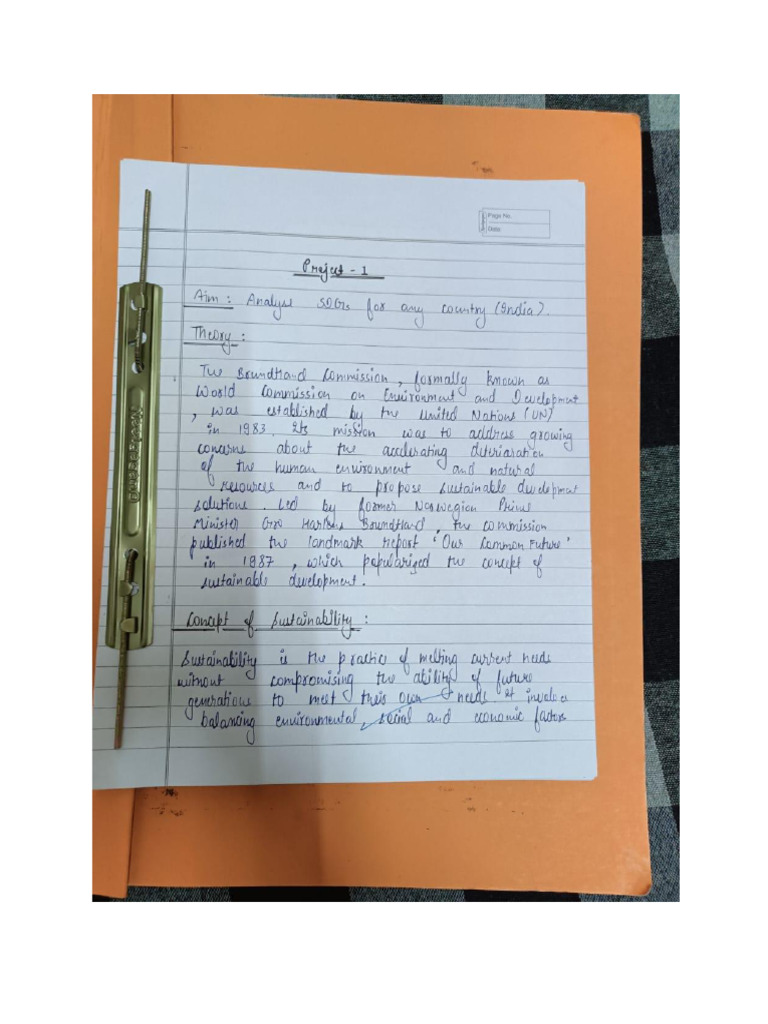 Page No.
Date
Project - 1
Aim : Analyse SDGs for any country (India).
Theory :
The Brundtland Commission, formally known as
World Commission on Environment and Development
, was established by the United Nations (UN)
in 1983. Its mission was to address growing
concerns about the accelerating deteriaration
of the human environment and natural
resources and to propose sustainable development
solutions. Led by former Norwegian Prime
Minister Gro Harlem Brundtland, the commission
published the landmark report 'Our Common Future'
in 1987, which popularized the concept of
sustainable development.
Concept of Sustainability :
Sustainability is the practice of meeting current needs
without compromising the ability of future
generations to meet their own needs. It involves
balancing environmental, social and economic factors